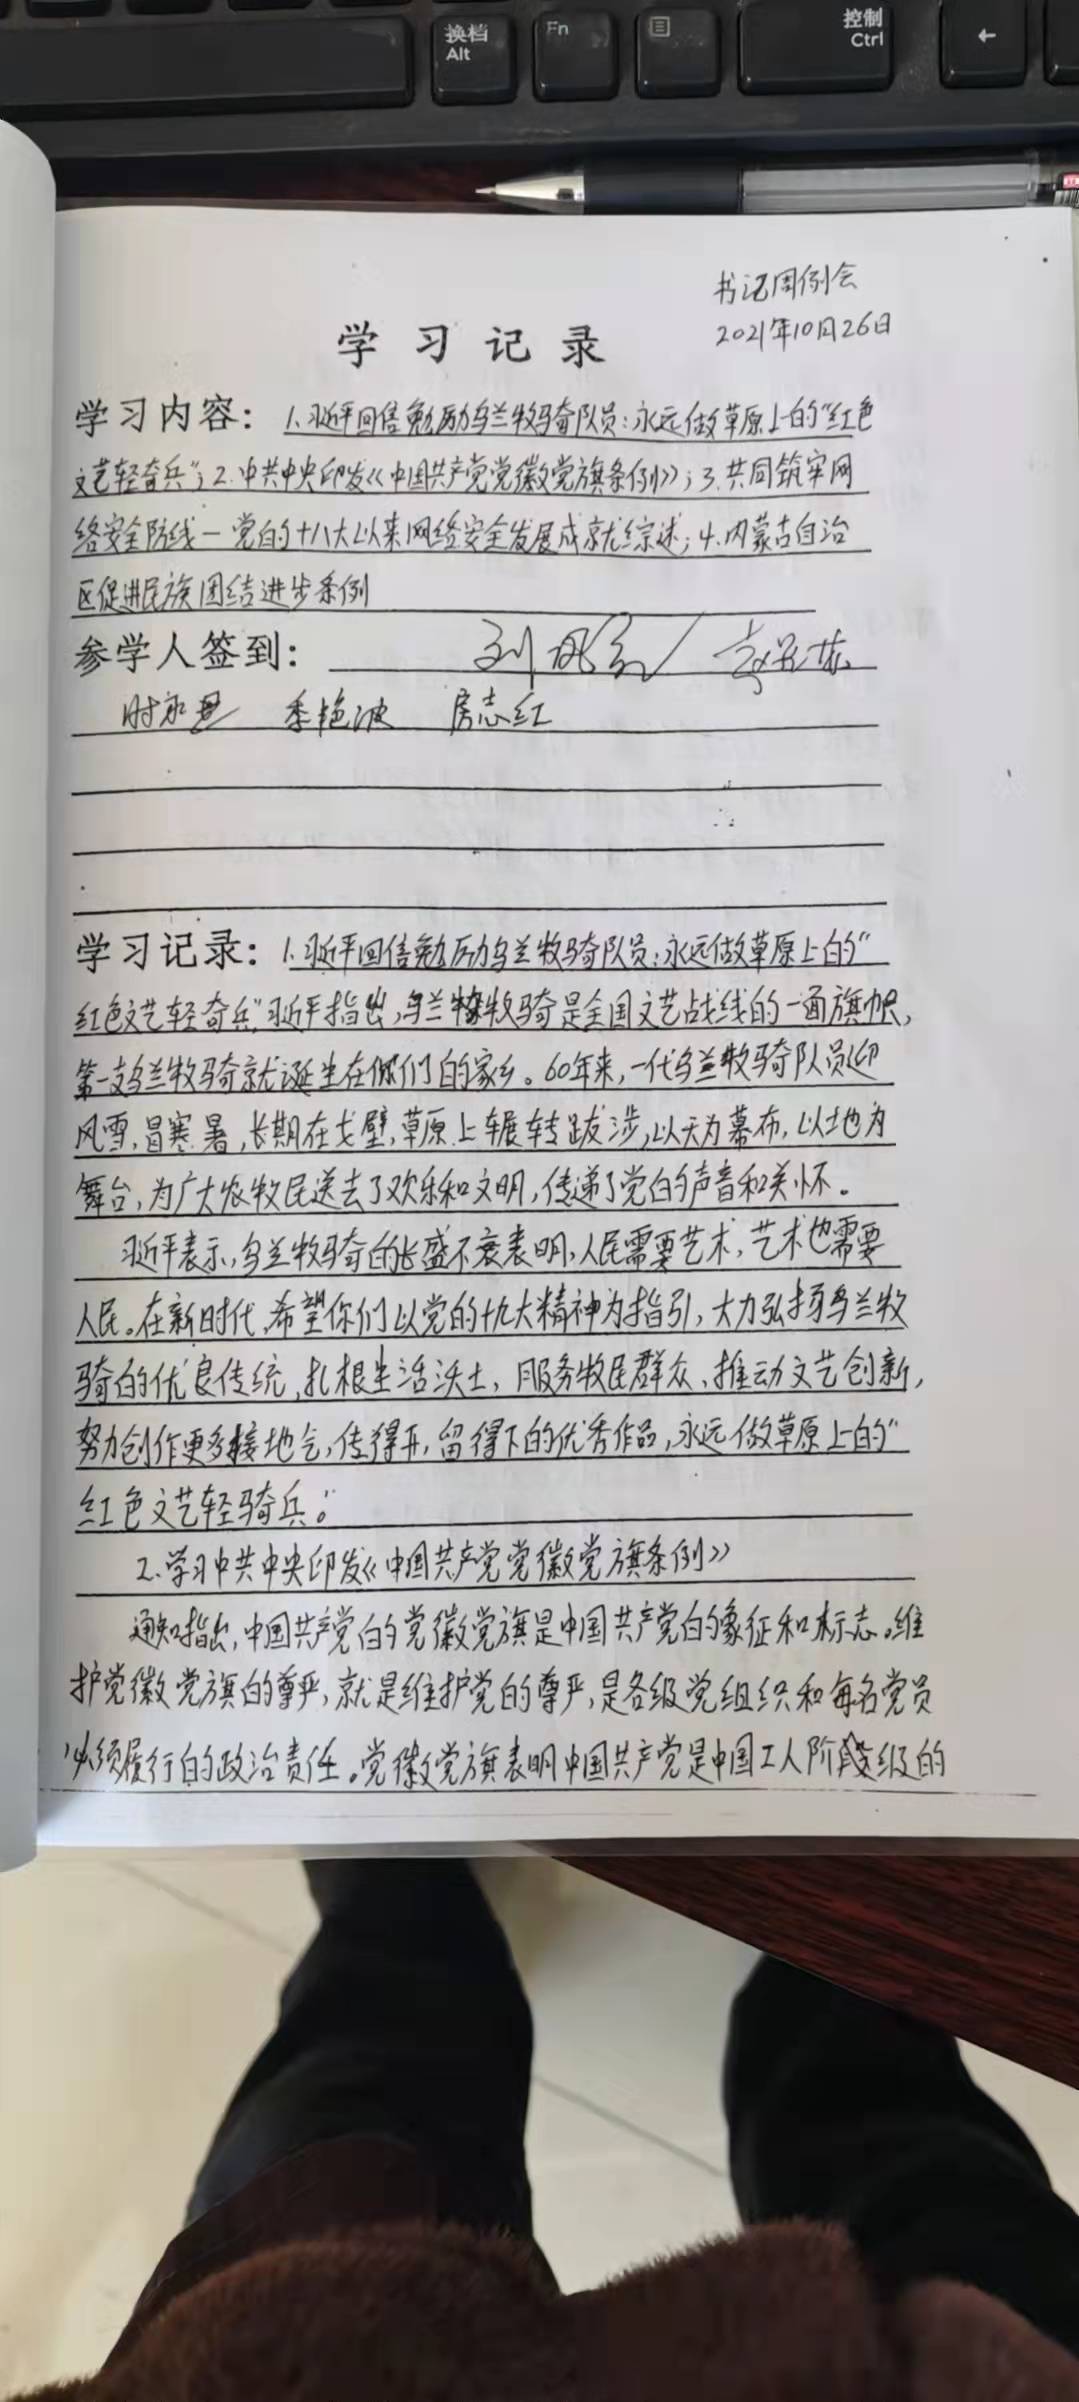 换档
Alt
Fn
控制
Ctrl
←
书记周例会
2021年10月26日
学习记录
学习内容：1.习近平回信勉励乌兰牧骑队员:永远做草原上的“红色
文艺轻奇兵”;2.中共中央印发《中国共产党党徽党旗条例》;3.共同筑牢网
络安全防线一党的十八大以来网络安全发展成就综述;4.内蒙古自治
区促进民族团结进步条例
参学人签到：
季艳波 房志红
学习记录：1.习近平回信勉励乌兰牧骑队员:永远做草原上的“
红色文艺轻奇兵”,习近平指出,乌兰牧骑是全国文艺战线的一面旗帜,
第一支乌兰牧骑就诞生在你们的家乡。60年来,一代乌兰牧骑队员迎
风雪,冒寒暑,长期在戈壁,草原上辗转跋涉,以天为幕布,以地为
舞台,为广大农牧民送去了欢乐和文明,传递了党的声音和关怀。
习近平表示,乌兰牧骑的长盛不衰表明,人民需要艺术,艺术也需要
人民。在新时代,希望你们以党的十九大精神为指引,大力弘扬乌兰牧
骑的优良传统,扎根生活沃土,服务牧民群众、推动文艺创新,
努力创作更多接地气,传得开,留得下的优秀作品,永远做草原上的“
红色文艺轻骑兵。”
2.学习中共中央印发《中国共产党党徽党旗条例》
通知指出,中国共产党的党徽党旗是中国共产党的象征和标志。维
护党徽党旗的尊严,就是维护党的尊严,是各级党组织和每名党员
必须履行的政治责任。党徽党旗表明中国共产党是中国工人阶级的